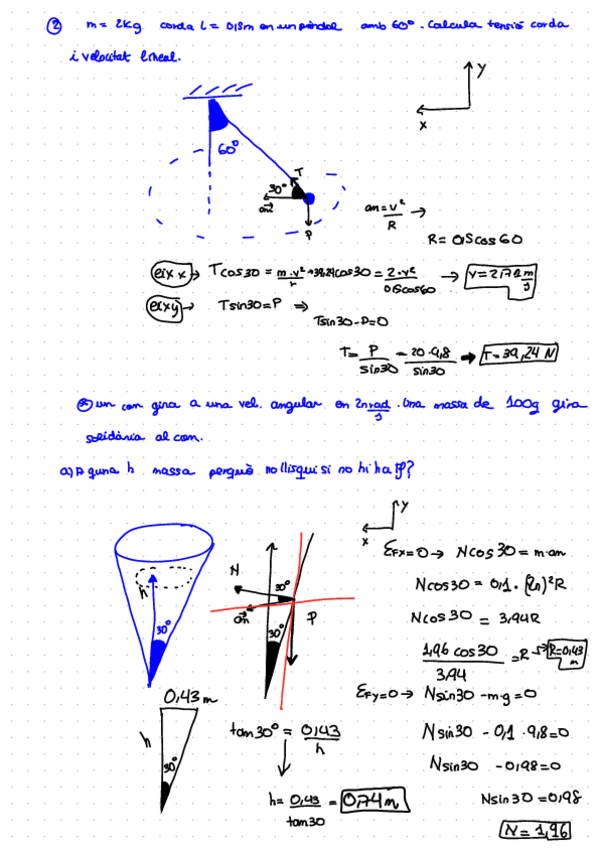 ② m = 2Kg corda L = 0,5m en un pèndol amb 60°. Calcula tensió corda
i velocitat lineal.
Y
X
60°
T
30°
an
P
an = v²/R →
R = 0,5 cos 60
eix x → T cos 30 = m·v²/r → 39,24 cos 30 = 2·v²/0,5 cos 60 → v = 2,72 m/s
eix y → T sin 30 = P ⇒
T sin 30 - P = 0
T = P/sin 30 = 20·9,8/sin 30 → T = 39,24 N
un con gira a una vel. angular en 2π rad/s. Una massa de 100g gira
solidària al con.
a) A quina h massa perquè no llisqui si no hi ha Ff?
Y
X
ΣFx = 0 → N cos 30 = m·an
h
30°
N
30°
an
P
30°
N cos 30 = 0,1 · (2π)² R
N cos 30 = 3,94R
1,96 cos 30/3,94 = R → R = 0,43 m
0,43 m
ΣFy = 0 → N sin 30 - m·g = 0
h
30°
tan 30° = 0,43/h
N sin 30 - 0,1 · 9,8 = 0
N sin 30 - 0,98 = 0
h = 0,43/tan 30 = 0,74 m
N sin 30 = 0,98
N = 1,96